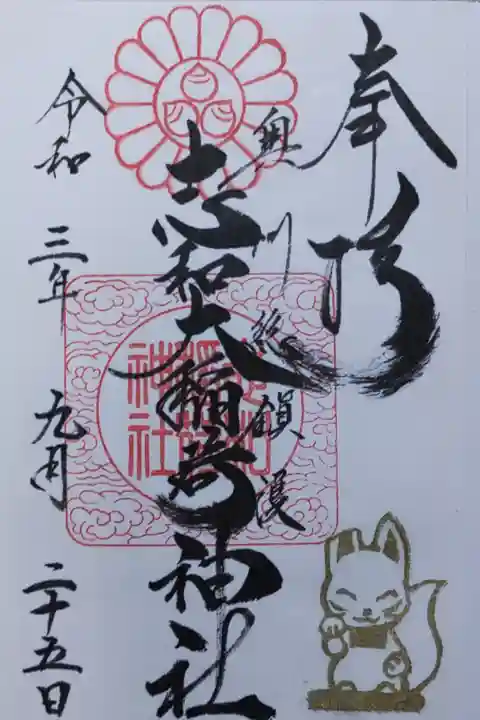 奉拝
奥州総鎮護
志和大稲荷神社
神社
令和三年九月二十五日